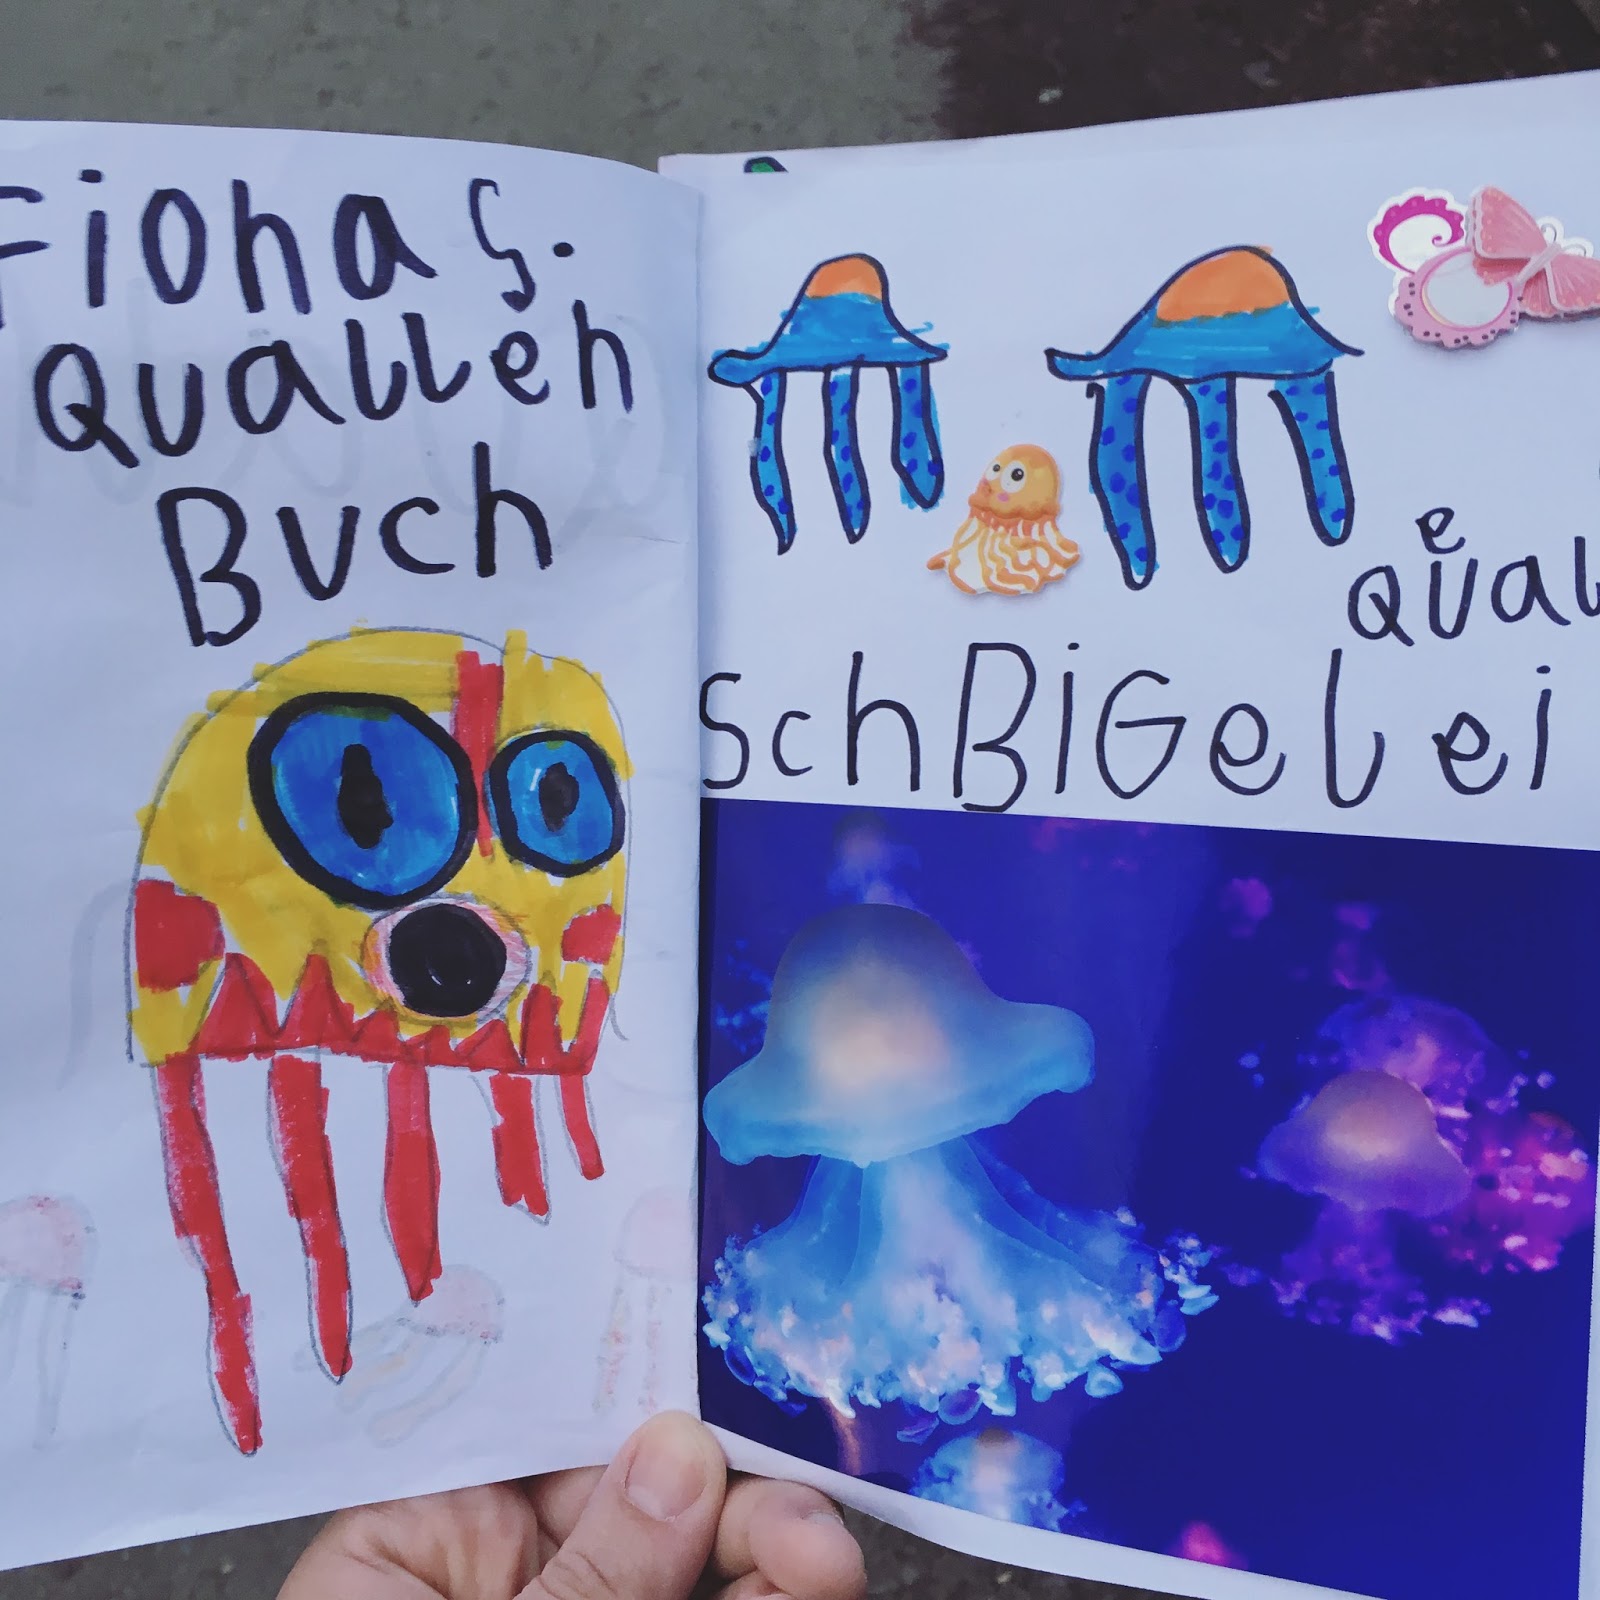 Fiona S.
Quallen
Buch
e
Qual
SchBiGelei